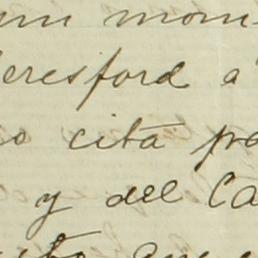 un mom
eresford a
o cita pa
y del Ca